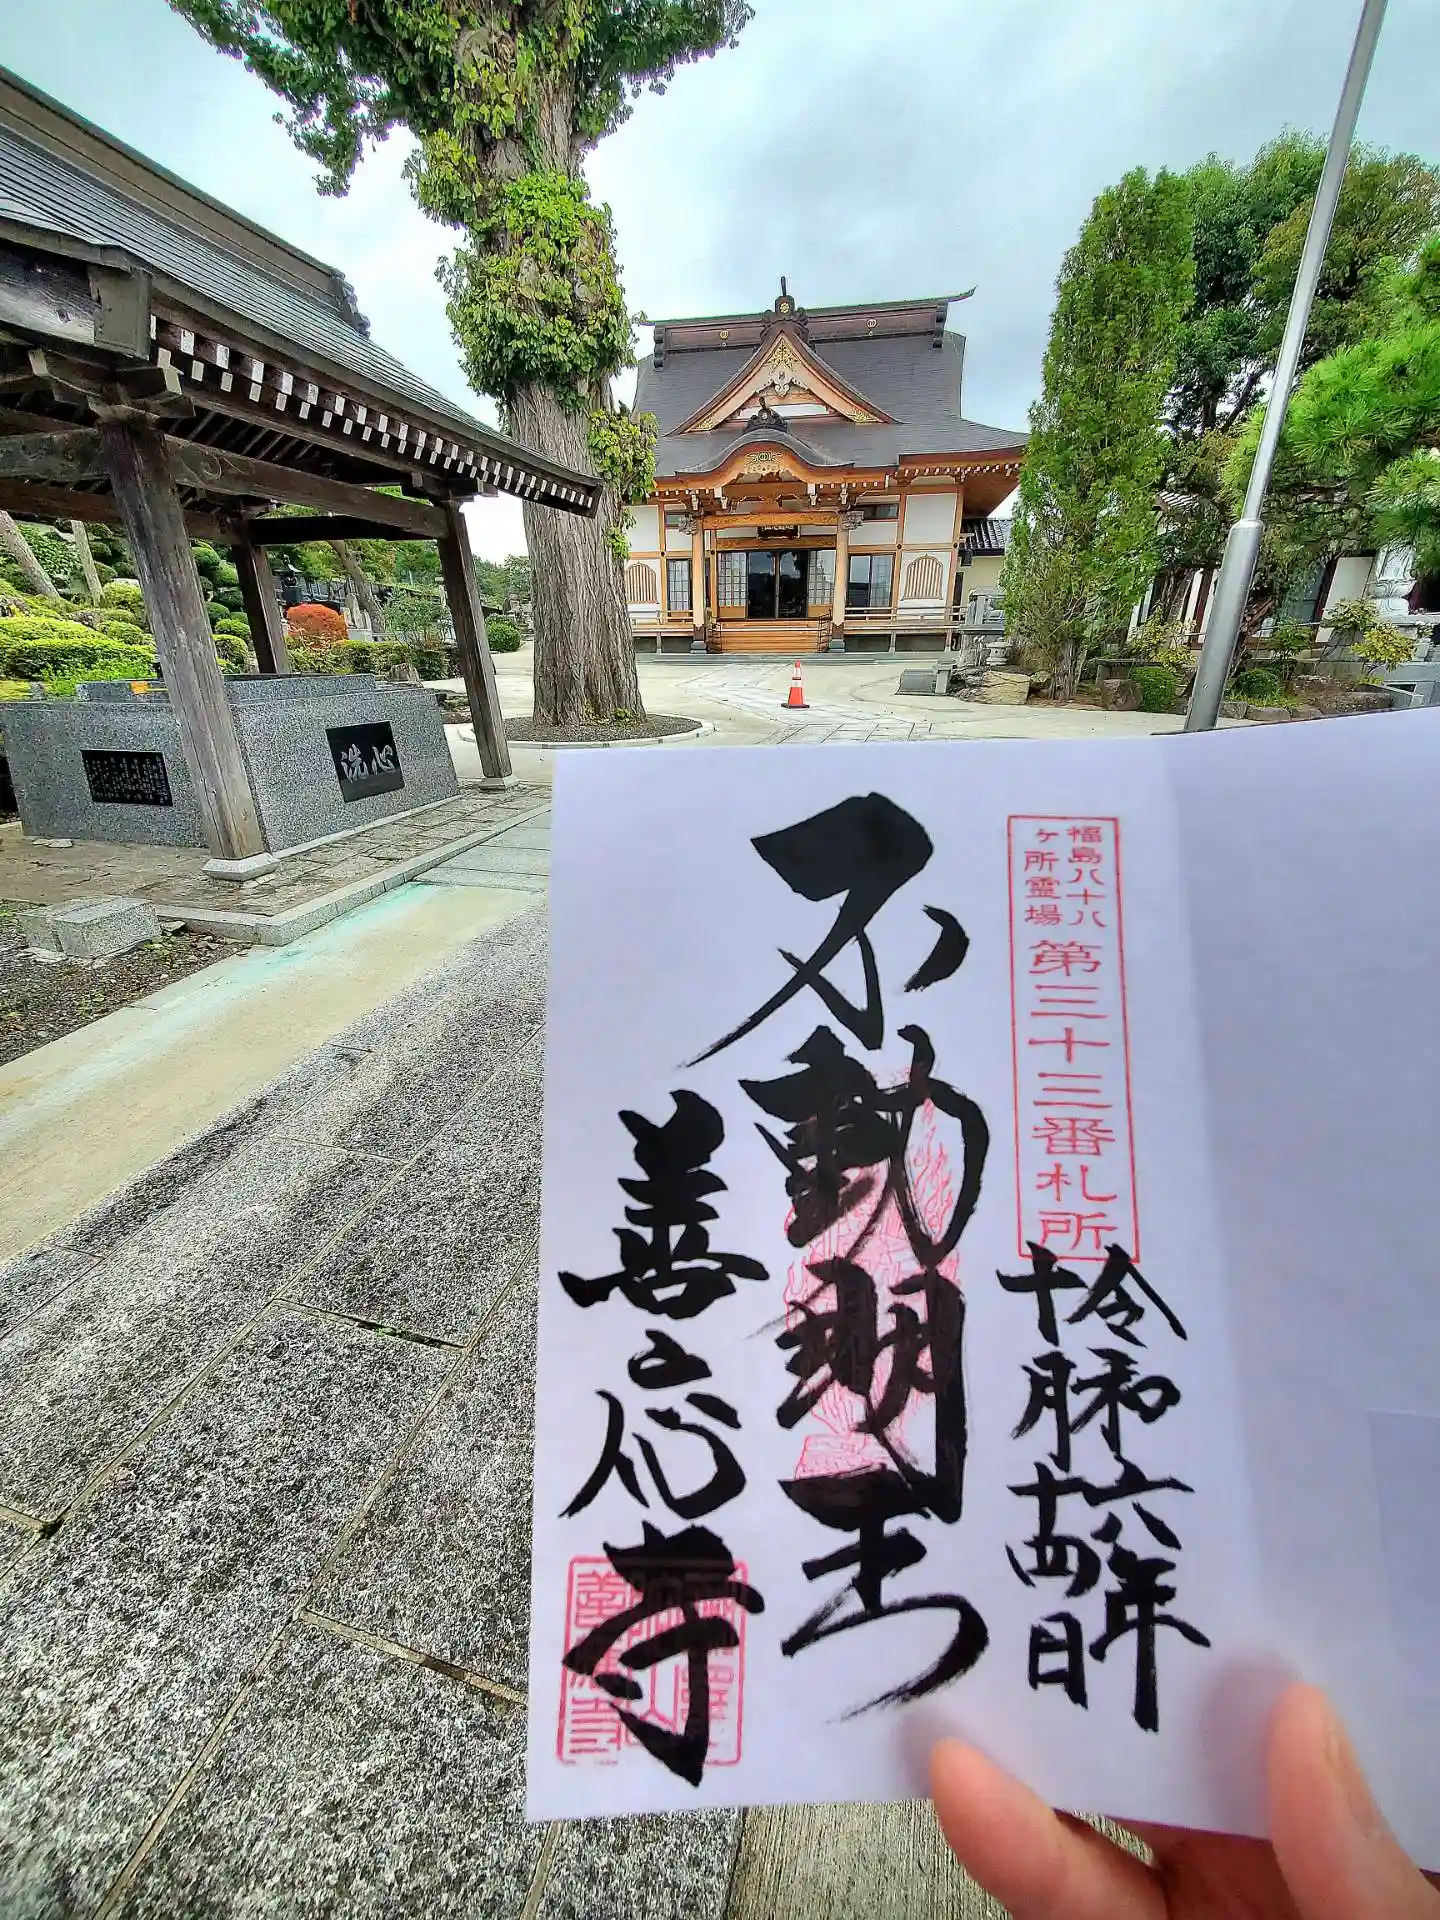 洗心
福島八十八
ヶ所霊場
第三十三番札所
令和六年
十月十四日
不動明王
善応寺